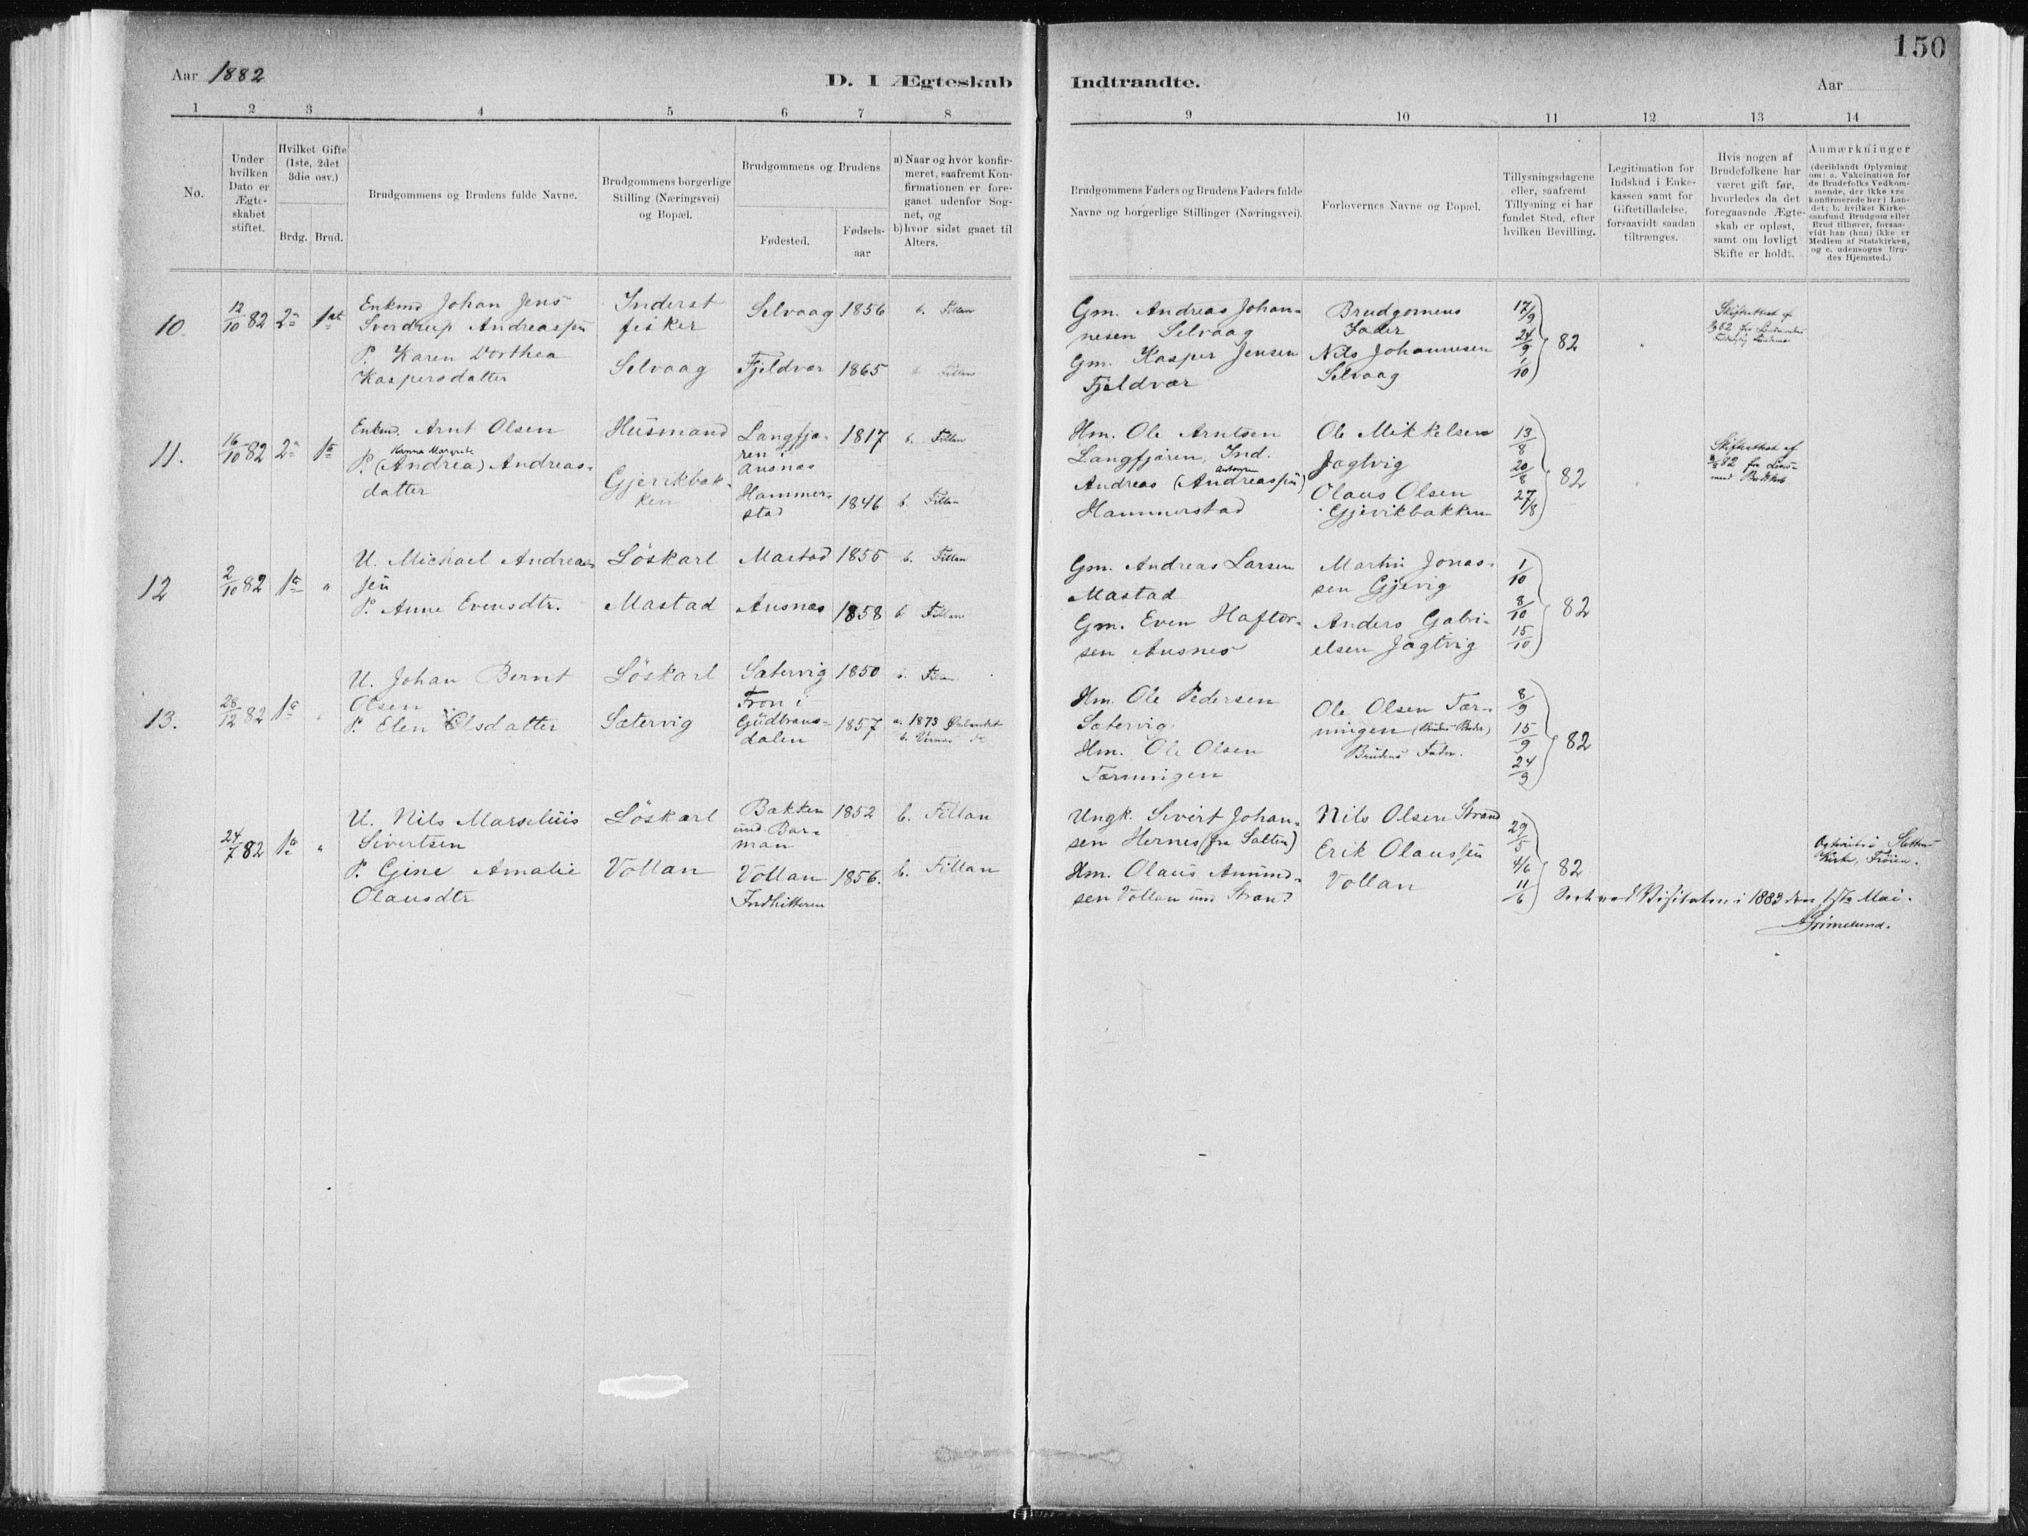 150
Aar 1882
D. I Ægteskab
Indtraadte.
Aar
1 2 3 4 5 6 7 8
9 10 11 12 13 14
No.
Under
hvilken
Dato er
Ægte-
skabet
stiftet.
Hvilket Gifte
(1ste, 2det
3die osv.)
Brdg. Brud.
Brudgommens og Brudens fulde Navne.
Brudgommens borgerlige
Stilling (Næringsvei)
og Bopæl.
Brudgommens og Brudens
Fødested.
Fødsels-
aar
a) Naar og hvor konfir-
meret, saafremt Kon-
firmationen er fore-
gaaet udenfor Sog-
net, og
b) hvor sidst gaaet til
Alters.
Brudgommens Faders og Brudens Faders fulde
Navne og borgerlige Stillinger (Næringsvei).
Forlovernes Navne og Bopæl.
Tillysningsdagene
eller, saafremt
Tillysning ei har
fundet Sted, efter
hvilken Bevilling.
Legitimation for
Indskud i Enke-
kassen samt for
Giftetilladelse,
forsaavidt saadan
tiltrænges.
Hvis nogen af
Brudefolkene har
været gift før,
hvorledes da det
foregaaende Ægte-
skab er opløst,
samt om lovligt
Skifte er holdt.
Anmærkninger
(deriblandt Oplysning
om: a. Vakcination for
de Brudefolks Vedkom-
mende, der ikke ere
konfirmerede her i Lan-
det; b. hvilket Kirke-
samfund Brudgom eller
Brud tilhører, forsaa-
vidt han (hun) ikke er
Medlem af Statskirken,
og c. udensogns Bru-
des Hjemsted.)
10. 12/10 82 2 1st
Enkmd Johan Jens
Sverdrup Andreassen
P. Karen Dorthea
Kaspersdatter
Inderst
fisker
Selvaag
Selvaag 1856 b. Fillan
Fjeldvær 1865 b. Fillan
Gm. Andreas Johan-
nesen Selvaag
Gm. Kasper Jensen
Fjeldvær
Brudgomens
Fader
Nils Johannesen
Selvaag
17/9
24/9 82
1/10
11. 16/10 82 2 1
Enkmd. Arnt Olsen
Hanna Margrete
P. (Andrea) Andreas-
datter
Husmand
Gjevikbak-
ken
Langfjø-
ren i
Ansnes
1817 b. Fillan
Hammer-
stad 1846 b. Fillan
Hm. Ole Arntsen
Langfjøren, Ind.
Andreas (Andreassen)
Hammerstad
Ole Mikkelsen
Jøgtvig
Olaus Olsen
Gjevikbakken
13/8
20/8 82
27/8
12 2/10 82 1 "
U. Michael Andreas-
sen
P. Anne Evensdtr.
Löskarl
Mastad
Mastad 1855 b. Fillan
Ansnes 1858 b. Fillan
Gm. Andreas Larsen
Mastad
Gm. Even Haftor-
sen Ansnes
Martin Jonas-
sen Gjevig
Anders Gabri-
elsen Jøgtvig
1/10
8/10 82
15/10
13. 28/12 82 1 "
U. Johan Bernt
Olsen
P. Elen Olsdatter
Löskarl
Sætervig
Sætervig 1850 b. Fillan
Fron i
Gudbrans-
dalen
1857 a. 1873 Ørlandet
Hm. Ole Pedersen
Sætervig.
Hm. Ole Olsen
Tærningen
Ole Olsen Tær-
ningen
Brudens Fader.
8/9
15/9 82
24/9
24/7 82 1 "
U. Nils Marselius
Sivertsen
P. Gine Amalie
Olausdtr
Löskarl
Vollan
Bakken
und Bar-
man
1852 b. Fillan
Vollan 1856. b. Fillan
Indhitteren
Ungk. Sivert Johan-
sen Hernes (fra Salten)
Hm. Olaus Amund-
sen Vollan und Strand
Nils Olsen Strand
Erik Olaussen
Vollan
29/5
4/6 82
11/6
Kirke, Frøien.
i 1883 den 1ste Mai.
Grimelund.